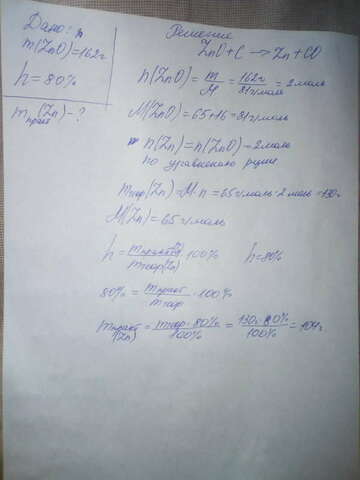 Дано:
m(ZnO)=162г
h=80%
mпракт(Zn)-?
Решение
ZnO+C → Zn + CO
n(ZnO) = m/M = 162г/81г/моль = 2 моль
M(ZnO) = 65+16 = 81г/моль
n(Zn) = n(ZnO) = 2моль
по уравнению р-ции
mтеор(Zn) = M·n = 65г/моль·2 моль = 130г
M(Zn) = 65г/моль
h = mпракт(Zn)/mтеор(Zn)·100% h=80%
80% = mпракт/mтеор·100%
mпракт(Zn) = mтеор·80%/100% = 130г·80%/100% = 104г